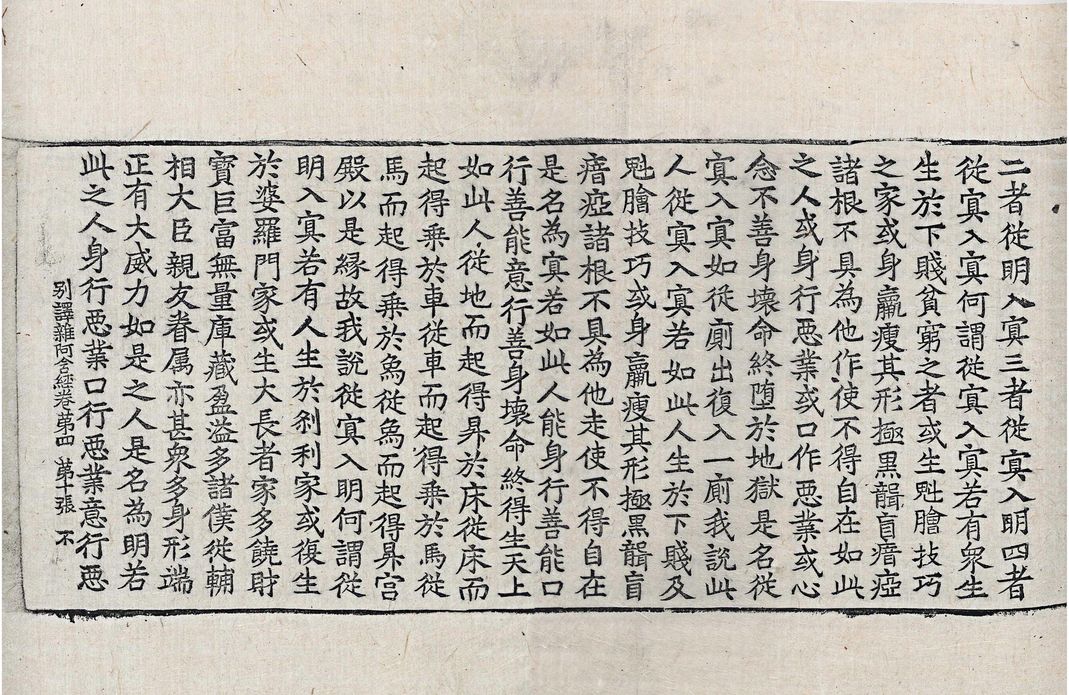 二者從明入㝠三者從㝠入明四者
從㝠入㝠何謂從㝠入㝠若有衆生
生於下賤貧窮之者或生魁膾技巧
之家或身羸瘦其形極黒聾盲瘖瘂
諸根不具為他作使不得自在如此
之人或身行惡業或口作惡業或心
念不善身壞命終墮於地獄是名從
㝠入㝠如從廁出復入一廁我說此
人從㝠入㝠若如此人生於下賤及
魁膾技巧或身羸瘦其形極黒聾盲
瘖瘂諸根不具為他走使不得自在
是名為㝠若如此人能身行善能口
行善能意行善身壞命終得生天上
如此人從地而起得昇於床從床而
起得乗於車從車而起得乗於馬從
馬而起得乗於象從象而起得昇宮
殿以是縁故我說從㝠入明何謂從
明入㝠若有人生於剎利家或復生
於婆羅門家或生大長者家多饒財
寶巨富無量庫藏盈溢多諸僕從輔
相大臣親友眷属亦甚衆多身形端
正有大威力如是之人是名為明若
此之人身行惡業口行惡業意行惡
別譯雜阿含經卷第四 第十張 不